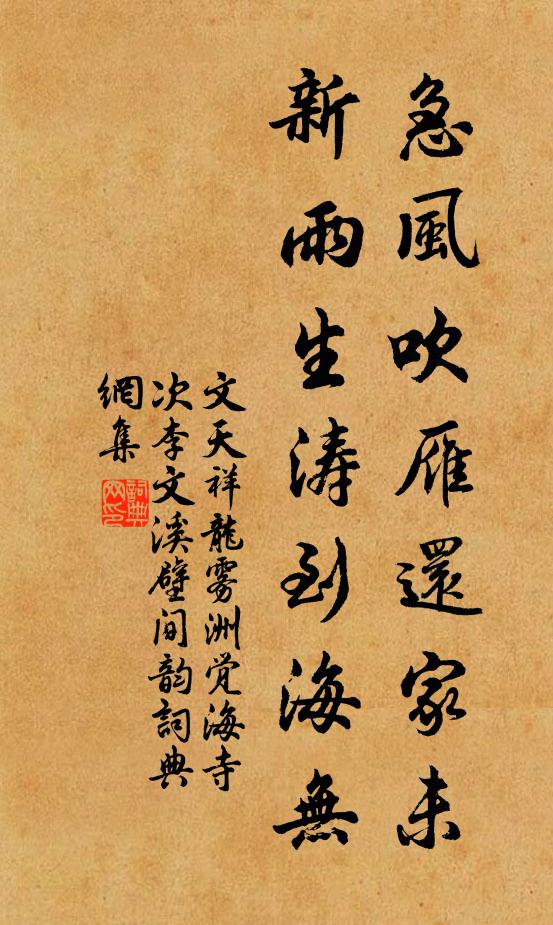 急風吹雁還家未
新雨生涛到海無
文天祥龍雾洲觉海寺
次李文溪壁间韵詞典
網集
詞典
网印